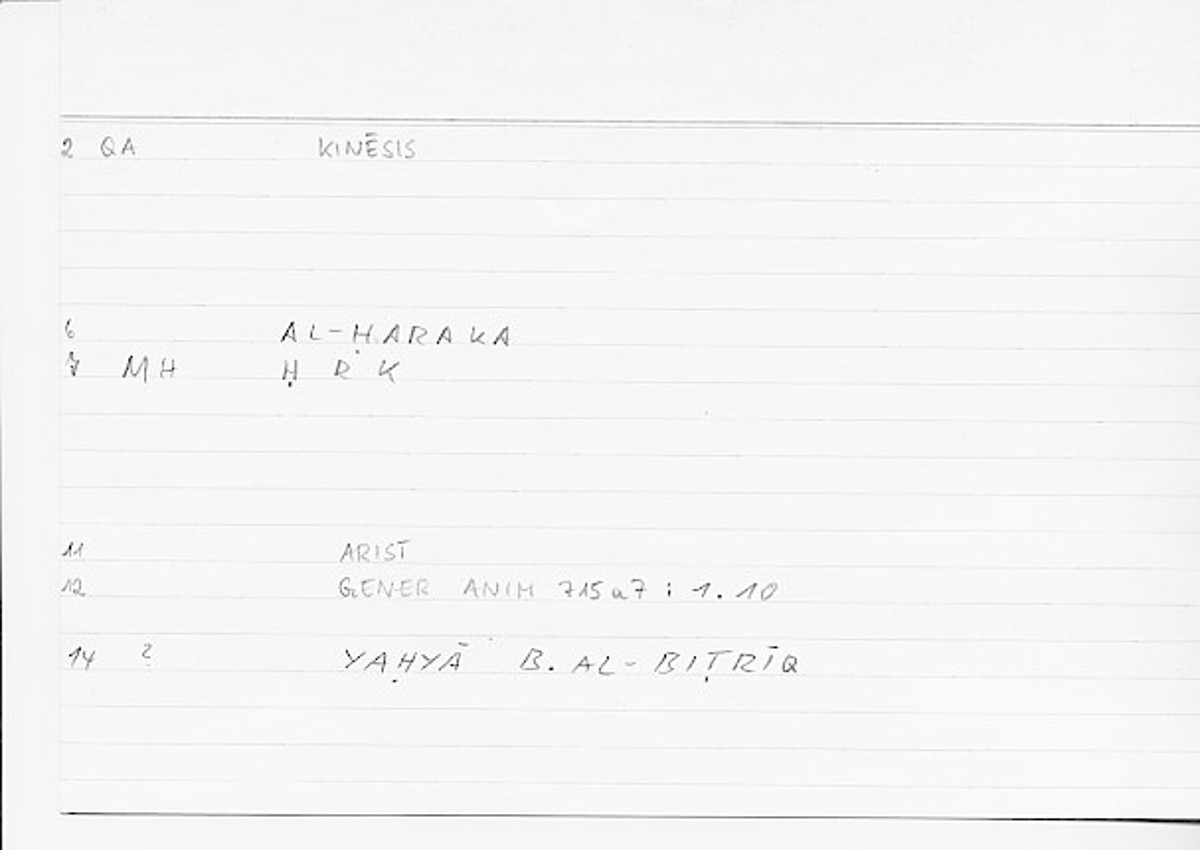 2 QA KINĒSIS
6 AL-ḤARAKA
7 MH Ḥ R K
11 ARIST
12 GENER ANIM 715a7 : 1.10
14 ? YAḤYĀ B. AL-BIṬRĪQ